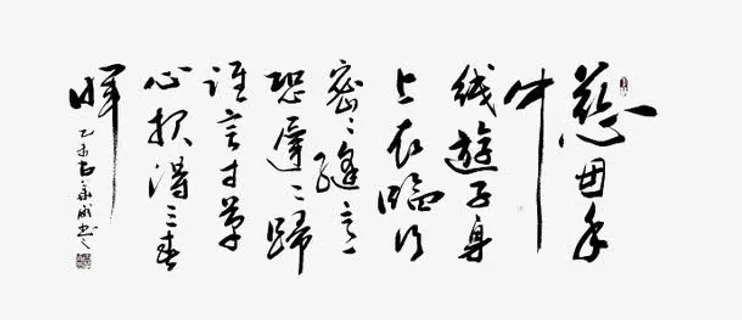 慈母手
中
线遊子身
上衣临行
密〻缝意
恐遲〻歸
谁言寸草
心报得三春
晖
乙未